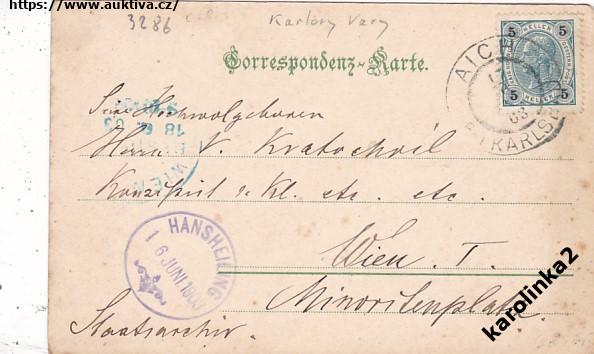 https://www.auktiva.cz/
3286
Karlovy Vary
Correspondenz-Karte.
5 HELLER 5
5 HELLER 5
AICH
KARLSB
03
Hochwolgeboren
Herrn V. Kratochvil
Konzipist I. Kl. etc. etc.
WIEN
18
HANSHEILING
16 JUNI 1903
Wien. I.
Minoritenplatz
Staatsarchiv.
karolinka2